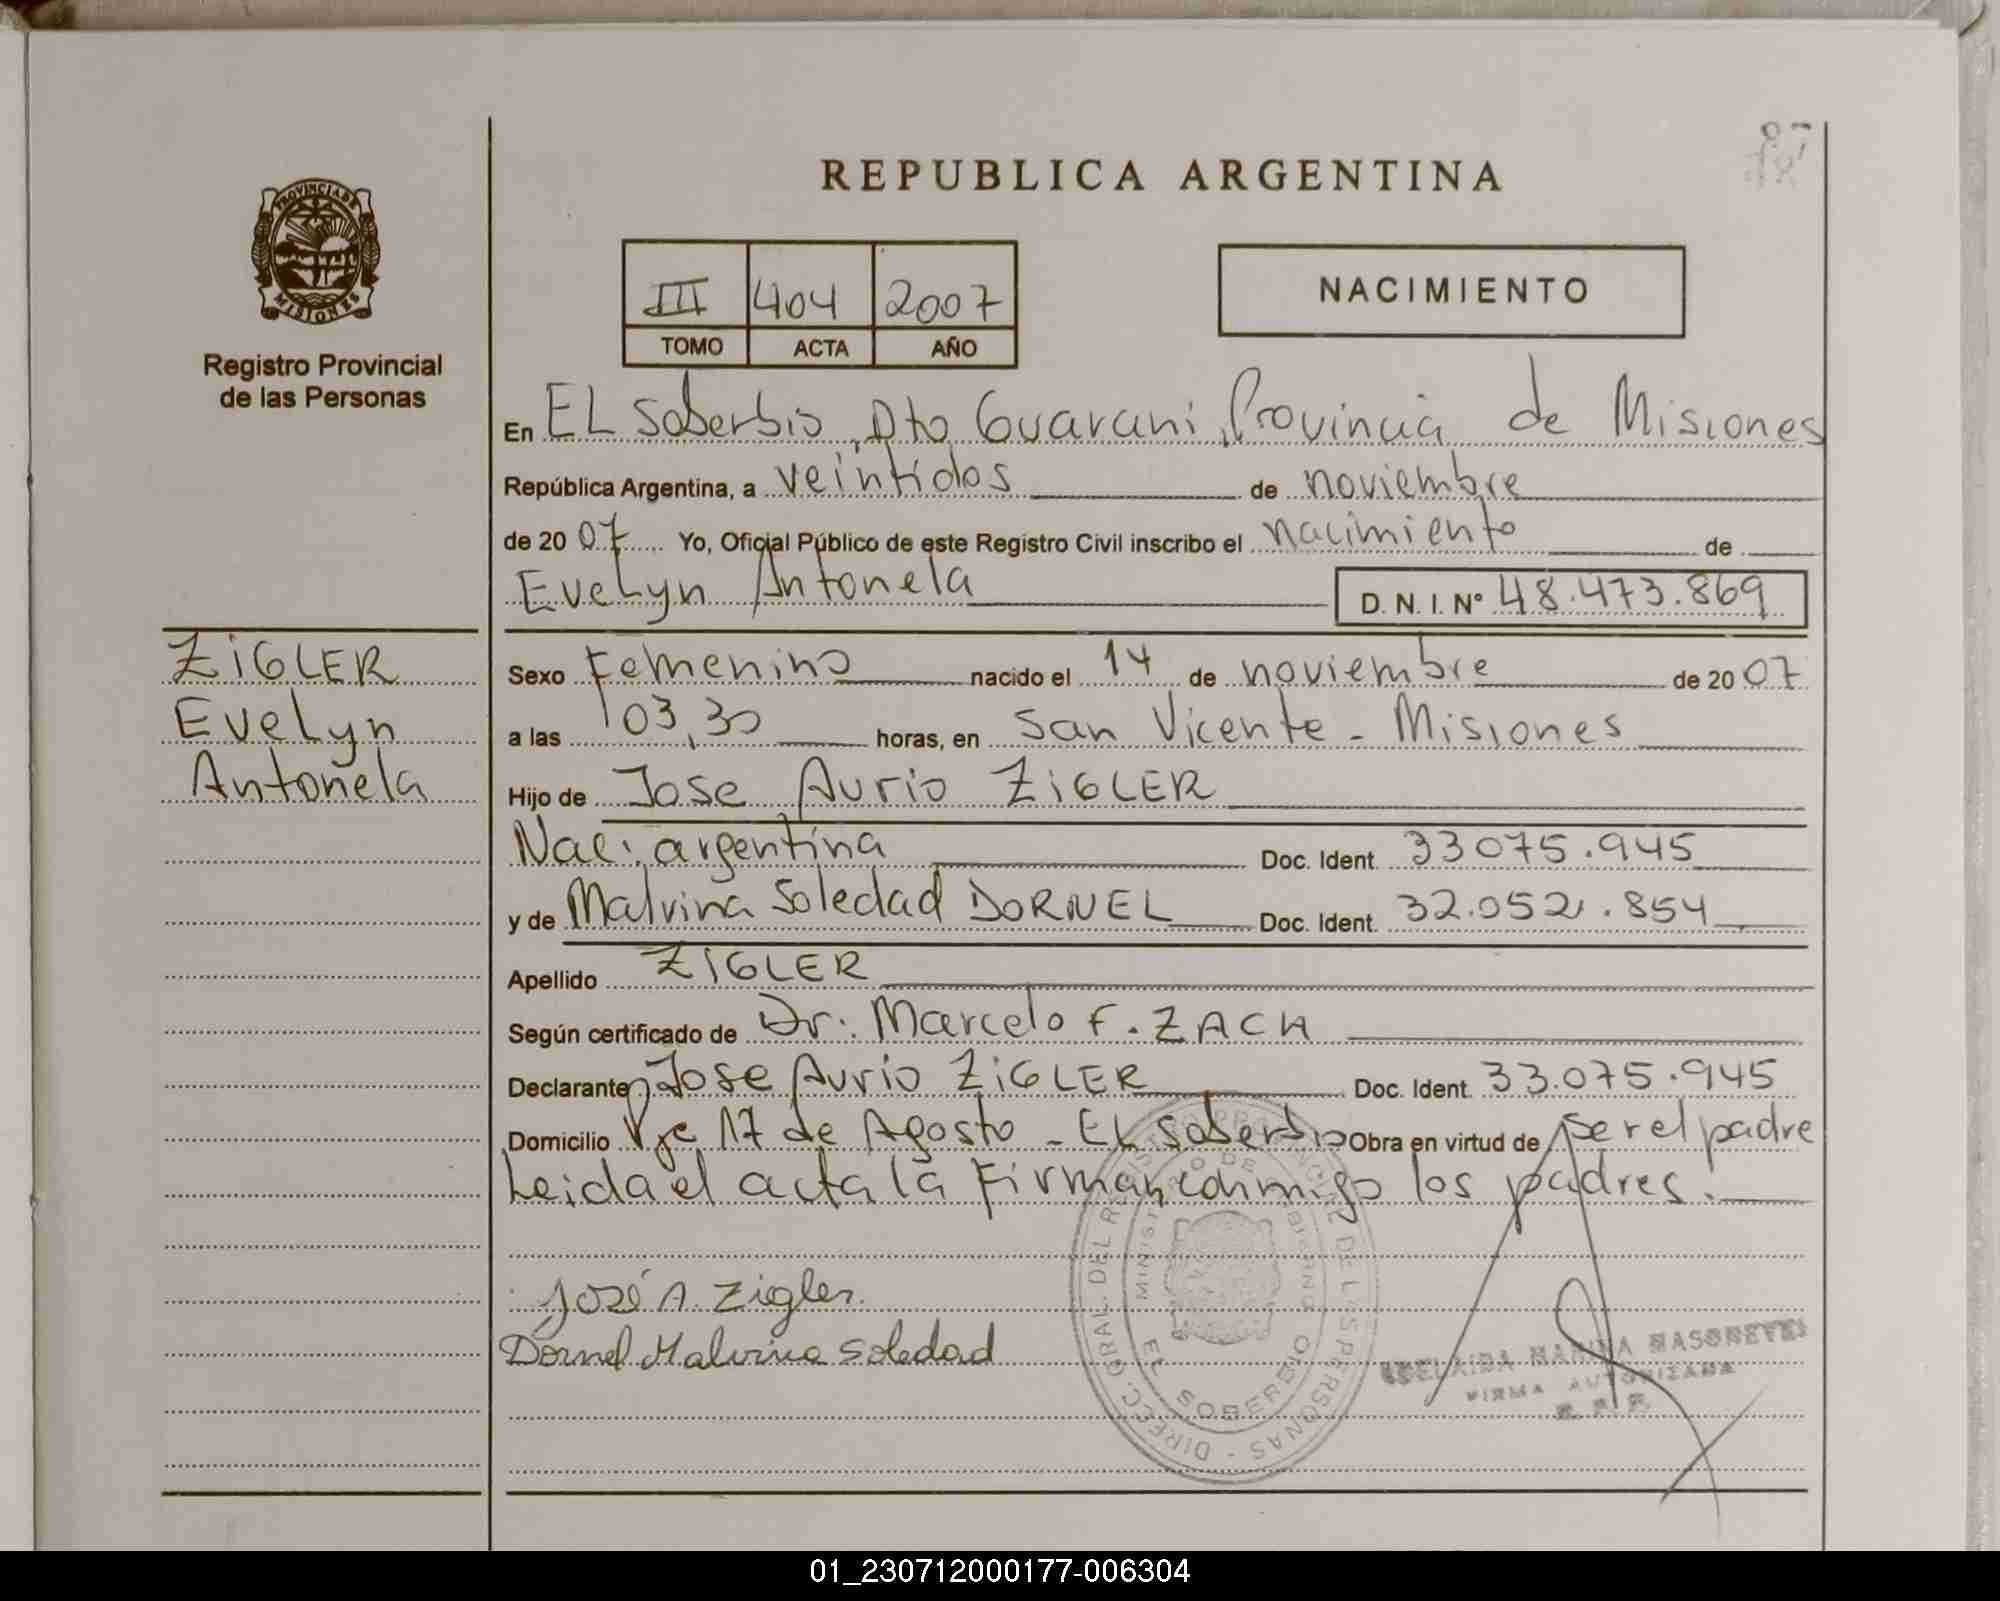 REPUBLICA ARGENTINA
PROVINCIA DE MISIONES
Registro Provincial
de las Personas
III 404 2007
TOMO ACTA AÑO
NACIMIENTO
En EL Soberbio, Dto Guarani, Provincia de Misiones
República Argentina, a veintidos de noviembre
de 2007 Yo, Oficial Público de este Registro Civil inscribo el nacimiento de
Evelyn Antonela D. N. I. Nº 48.473.869
ZIGLER
Evelyn
Antonela
Sexo Femenino nacido el 14 de noviembre de 2007
a las 03,30 horas, en San Vicente - Misiones
Hijo de Jose Aurio ZIGLER
Nac. argentina Doc. Ident. 33075.945
y de Malvina Soledad DORNEL Doc. Ident. 32.052.854
Apellido ZIGLER
Según certificado de Dr. Marcelo F. ZACH
Declarante Jose Aurio ZIGLER Doc. Ident. 33.075.945
Domicilio Pje 17 de Agosto - EL Soberbio Obra en virtud de ser el padre
Leida el acta la Firman conmigo los padres.
José A. Zigler.
Dornel Malvina Soledad
DIRECC. GRAL. DEL REGISTRO PROVINCIAL DE LAS PERSONAS -
MINISTERIO DE GOBIERNO
EL SOBERBIO
FIRMA AUTORIZADA
01_230712000177-006304